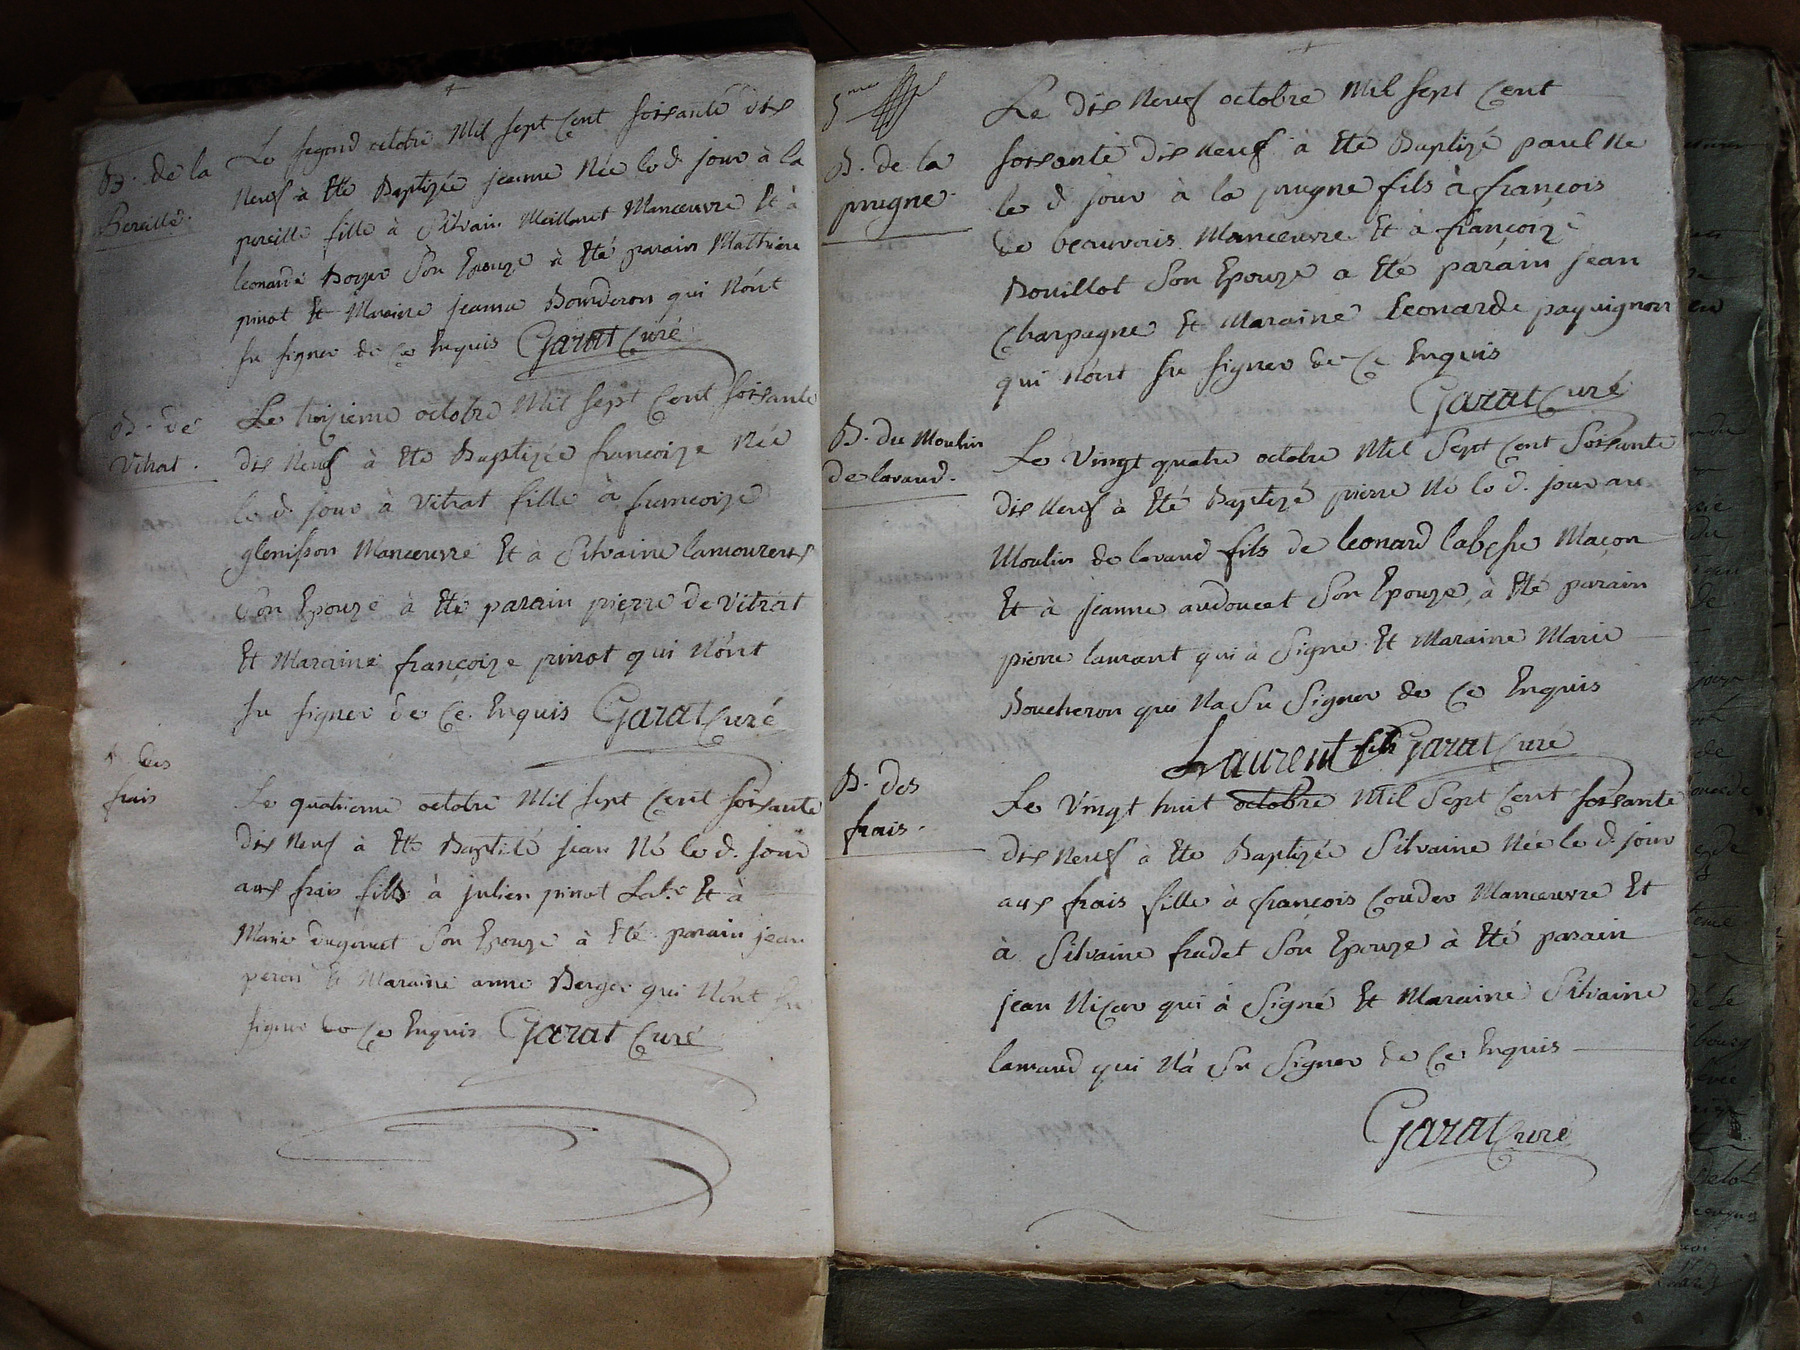 B. de la
Pereille.
Le segond octobre Mil sept Cent soixante dix
Neuf à Eté Baptizée jeanne Née led. jour à la
pereille fille à Silvain Meillaret Manœuvre Et à
leonarde Boyer Son Epouze à Eté parain Mathieu
pinot Et Maraine jeanne Bourderon qui N'ont
su signer de Ce Enquis Garat Curé
B. de
Vitrat.
Le troizieme octobre Mil sept Cent soixante
dix Neuf à Eté Baptizée francoize Née
le d. jour à Vitrat fille à francoize
glenisson Manœuvre Et à Silvaine lamoureux
Son Epouze à Eté parain pierre de Vitrat
Et Maraine françoize pinot qui N'ont
su signer de Ce Enquis Garat Curé
des
frais
Le quatrieme octobre Mil sept Cent soixante
dix Neuf à Eté Baptizé jean Né le d. jour
aux frais fils à julien pinot Lab.r Et à
Marie Son Epouze à Eté parain jean
peron Et Maraine anne Berger qui N'ont su
signer de Ce Enquis Garat Curé
B. de la
prugne.
Le dix Neuf octobre Mil sept Cent
soixante dix neuf à Eté Baptizé paul Ne
le d jour à la prugne fils à françois
de beauvais Manœuvre Et à françoize
Bouillot Son Epouze a Eté parain jean
Charpagne Et Maraine Leonarde paquignon
qui N'ont su signer de Ce Enquis
Garat Curé
B. du Moulin
de lavaud.
Le Vingt quatre octobre Mil Sept Cent Soixante
dix neuf à Eté Baptizé pierre Né le d. jour au
Moulin de lavaud fils de leonard labesse Maçon
Et à jeanne audoucet Son Epouze, à Eté parain
pierre laurant qui à Signé Et Maraine Marie
Boucheron qui Na Su Signer de Ce Enquis
Laurent fils Garat Curé
B. des
frais.
Le Vingt huit octobre Mil Sept Cent soixante
dix neuf à Eté Baptizée Silvaine Née le d. jour
aux frais fille à françois Couder Manœuvre Et
à Silvaine fradet Son Epouze à Eté parain
jean Niçar qui à Signé Et Maraine Silvaine
lamaud qui N'à Su Signer de Ce Enquis
Garat Curé